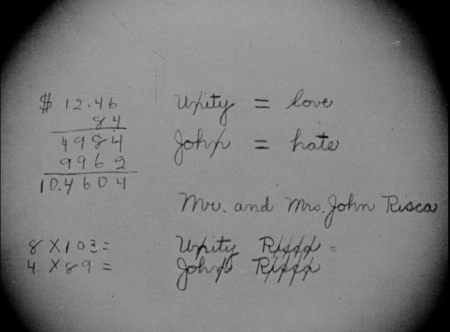 $ 12.46
84
4984
9968
10.4604
8 X 103 =
4 X 89 =
Unity = love
John = hate
Mr. and Mrs. John Risca
Unity Risca =
John Risca